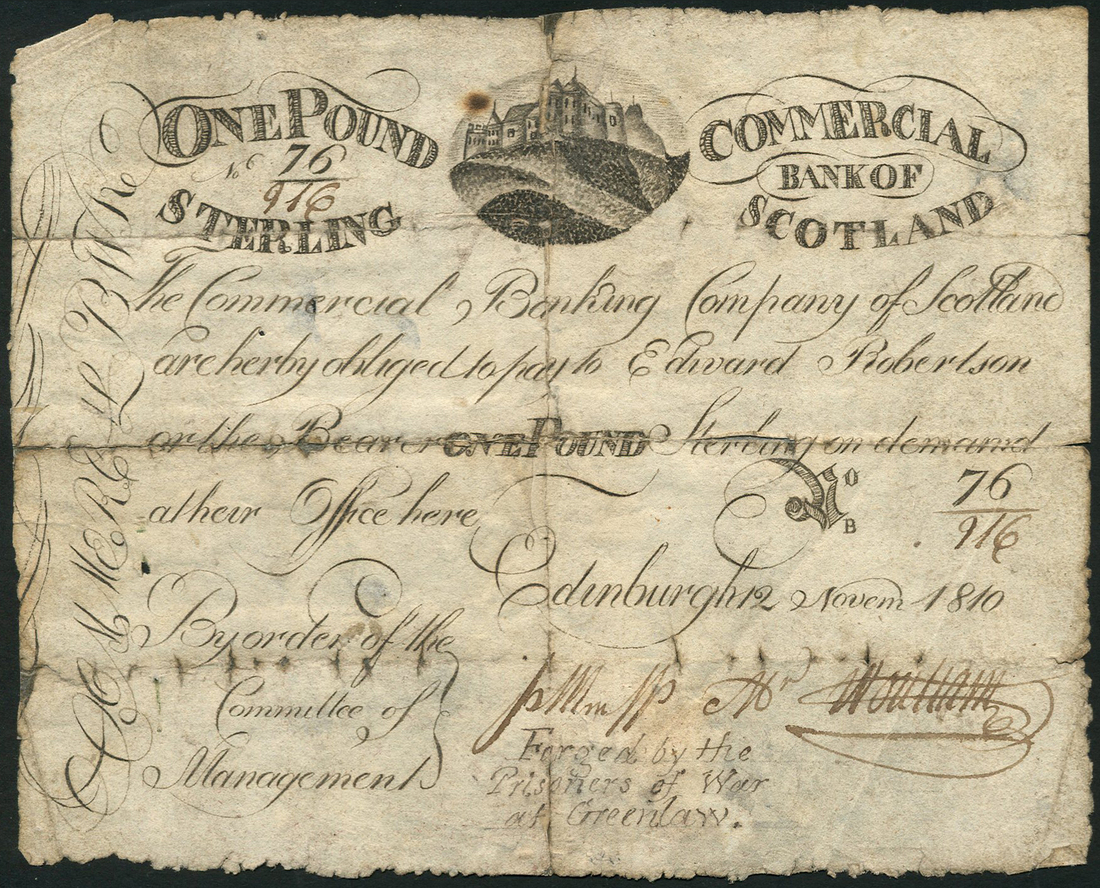 ONE POUND
No 76
916
STERLING
COMMERCIAL
BANK OF
SCOTLAND
The Commercial Banking Company of Scotland
are herby obliged to pay to Edward Robertson
or the Bearer ONE POUND Sterling on demand
at heir Office here
No
B
76
916
Edinburgh 12 Novem 1810
By order of the
Committee of
Management
Forged by the
Prisoners of War
at Greenlaw.